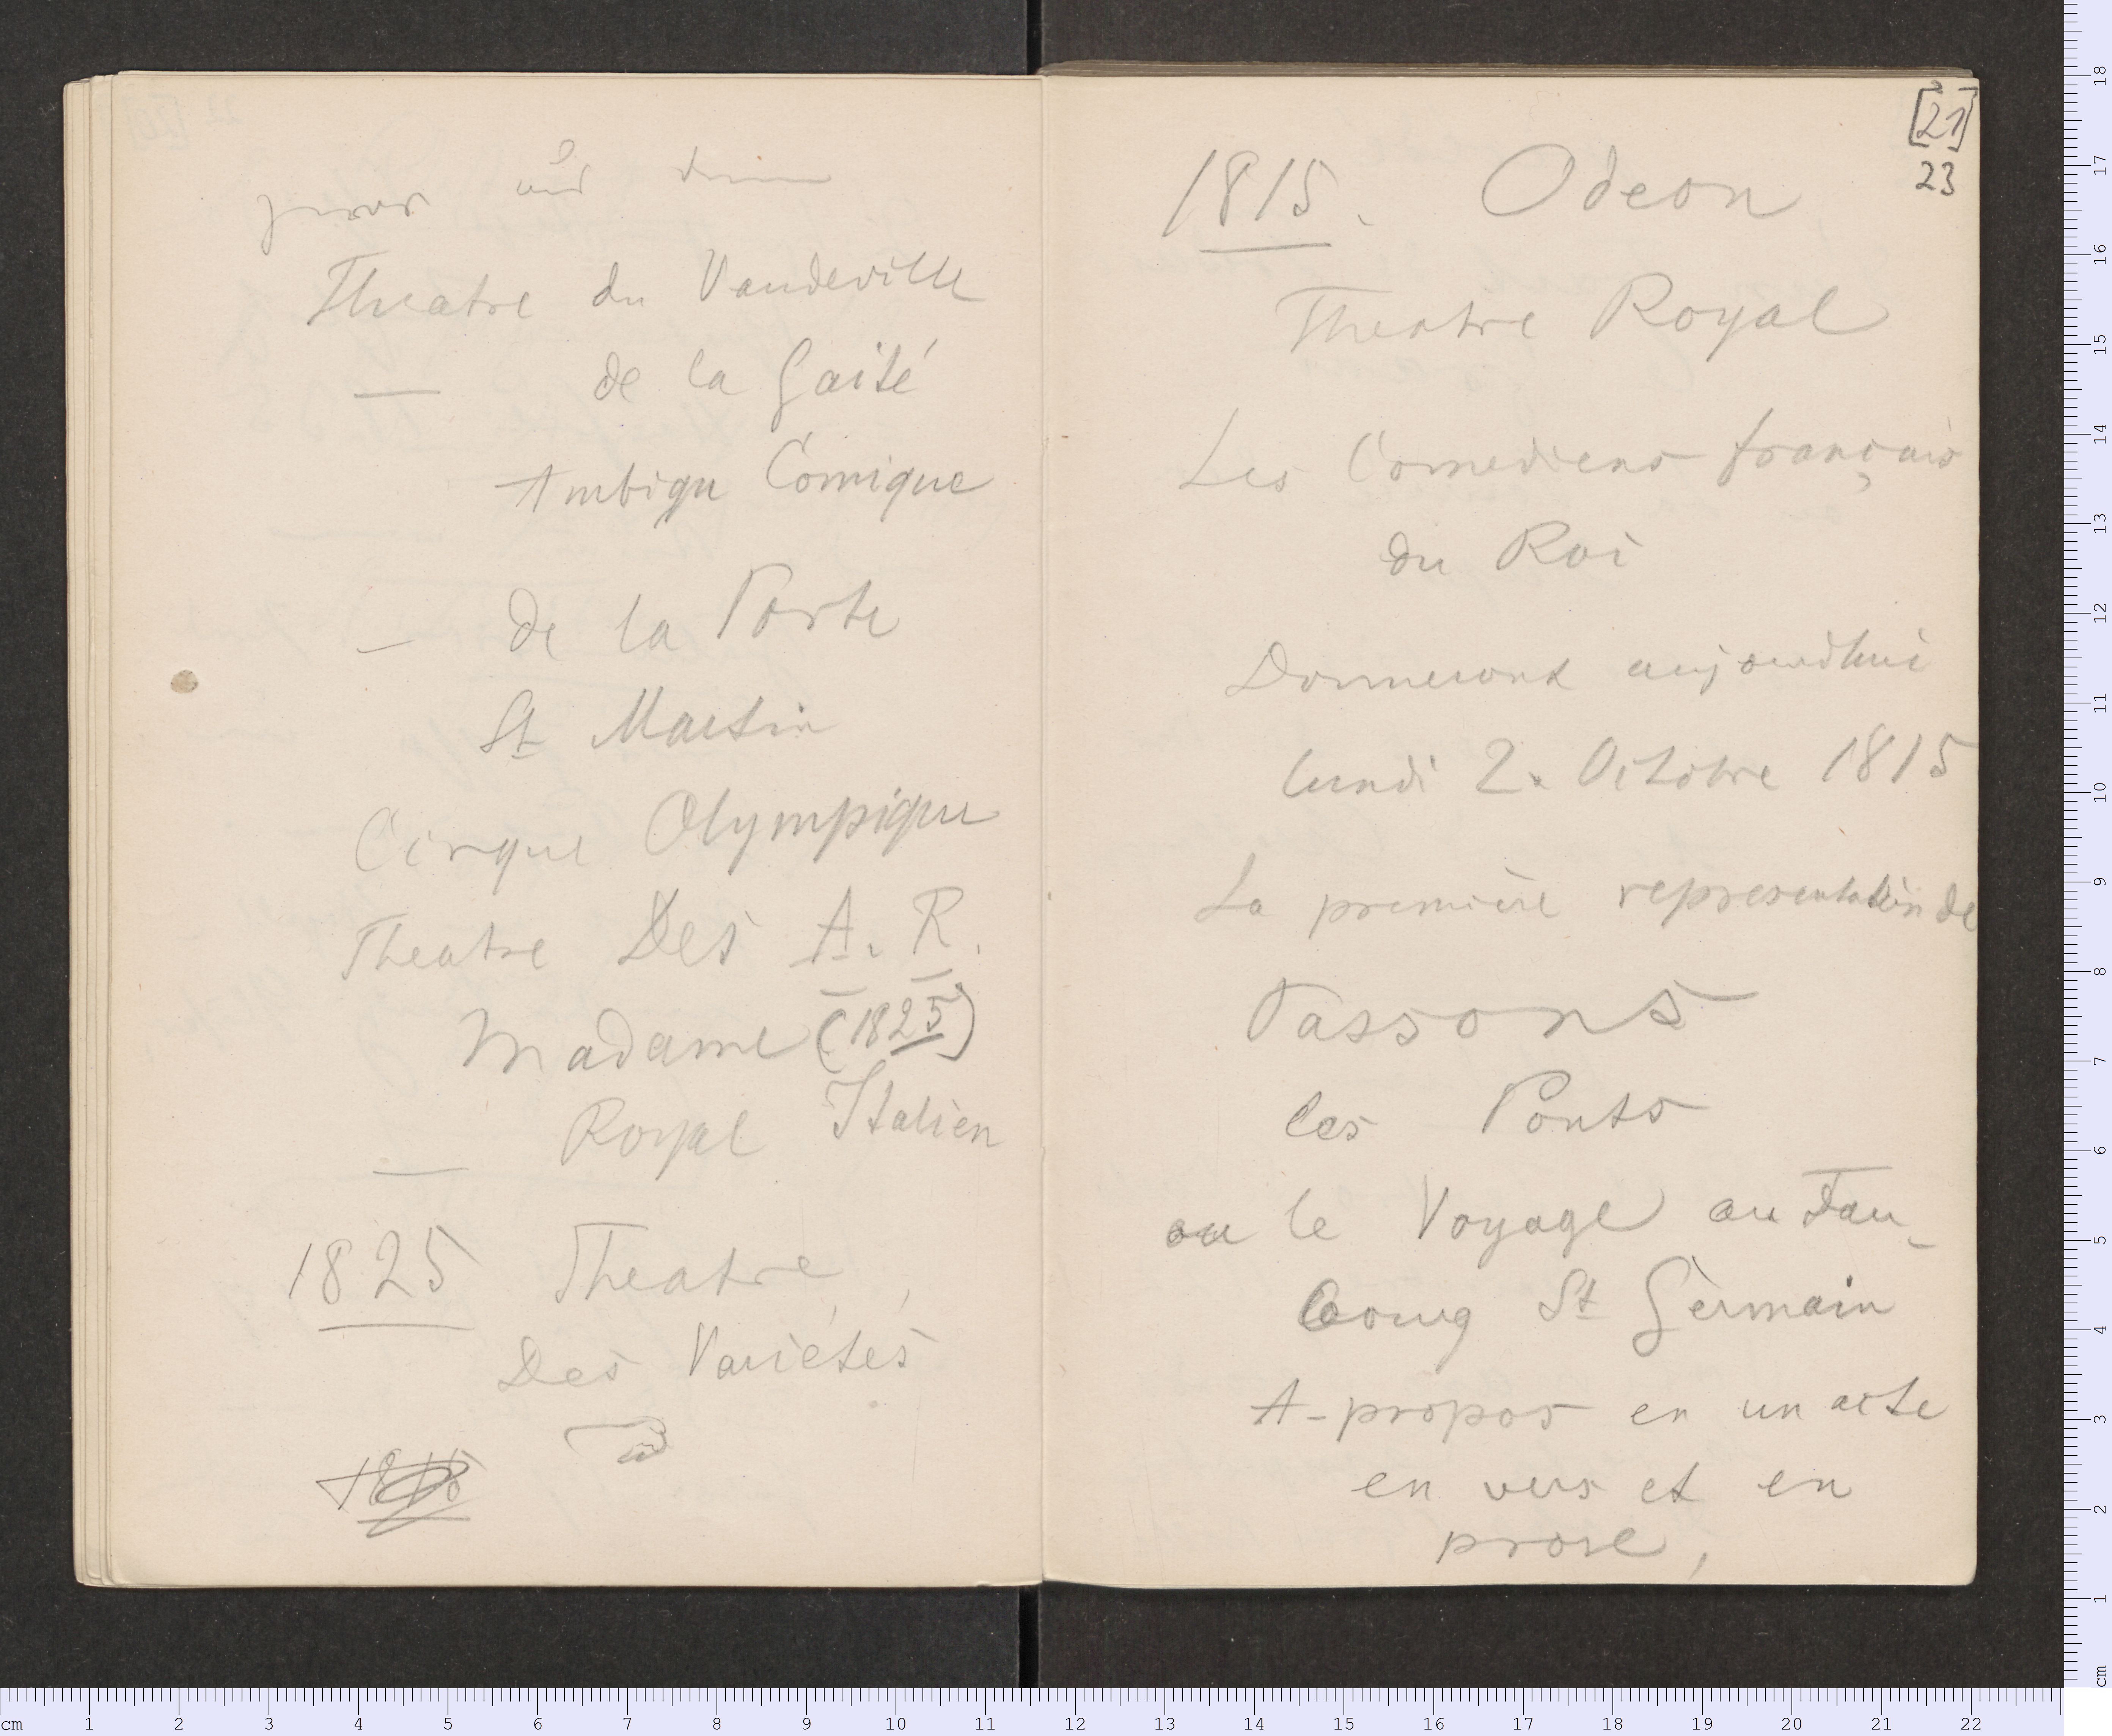 und dann
Theatre du Vaudeville
— de la Gaité
Ambigu Comique
— de la Porte
St Martin
Cirque Olympique
Theatre Des A. R.
Madame (1825)
— Royal Italien
1825 Theatre
Des Variétés
[21]
23
1815. Odeon
Theatre Royal
Les Comediens français
du Roi
Donneront aujourdhui
lundi 2. Octobre 1815
La première representation de
Passons
les Ponts
ou le Voyage au Fau-
bourg St Germain
A-propos en un acte
en vers et en
prose,
cm 1 2 3 4 5 6 7 8 9 10 11 12 13 14 15 16 17 18 19 20 21 22
cm 1 2 3 4 5 6 7 8 9 10 11 12 13 14 15 16 17 18